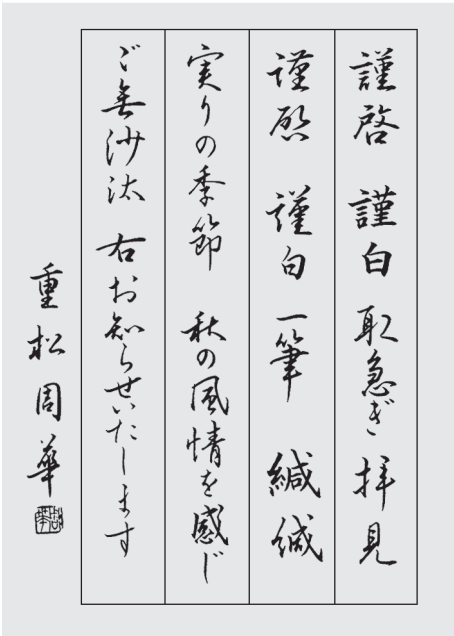 謹啓 謹白 取急ぎ 拝見
謹啓 謹白 一筆 緘 緘
実りの季節 秋の風情を感じ
ご無沙汰 右お知らせいたします
重松周華